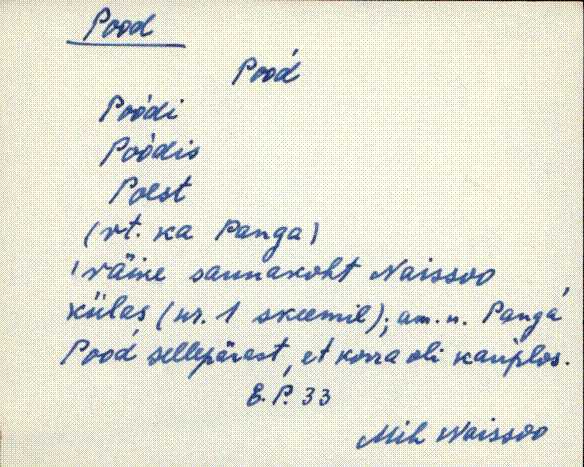 Pood
Poód
Poódi
Poódis
Poest
(vt. ka Panga)
väike saunakoht Naissoo
külas (nr. 1 skeemil); am. n. Panga
Pood sellepärast, et korra oli kauplos.
E. P. 33
Mih Naissoo